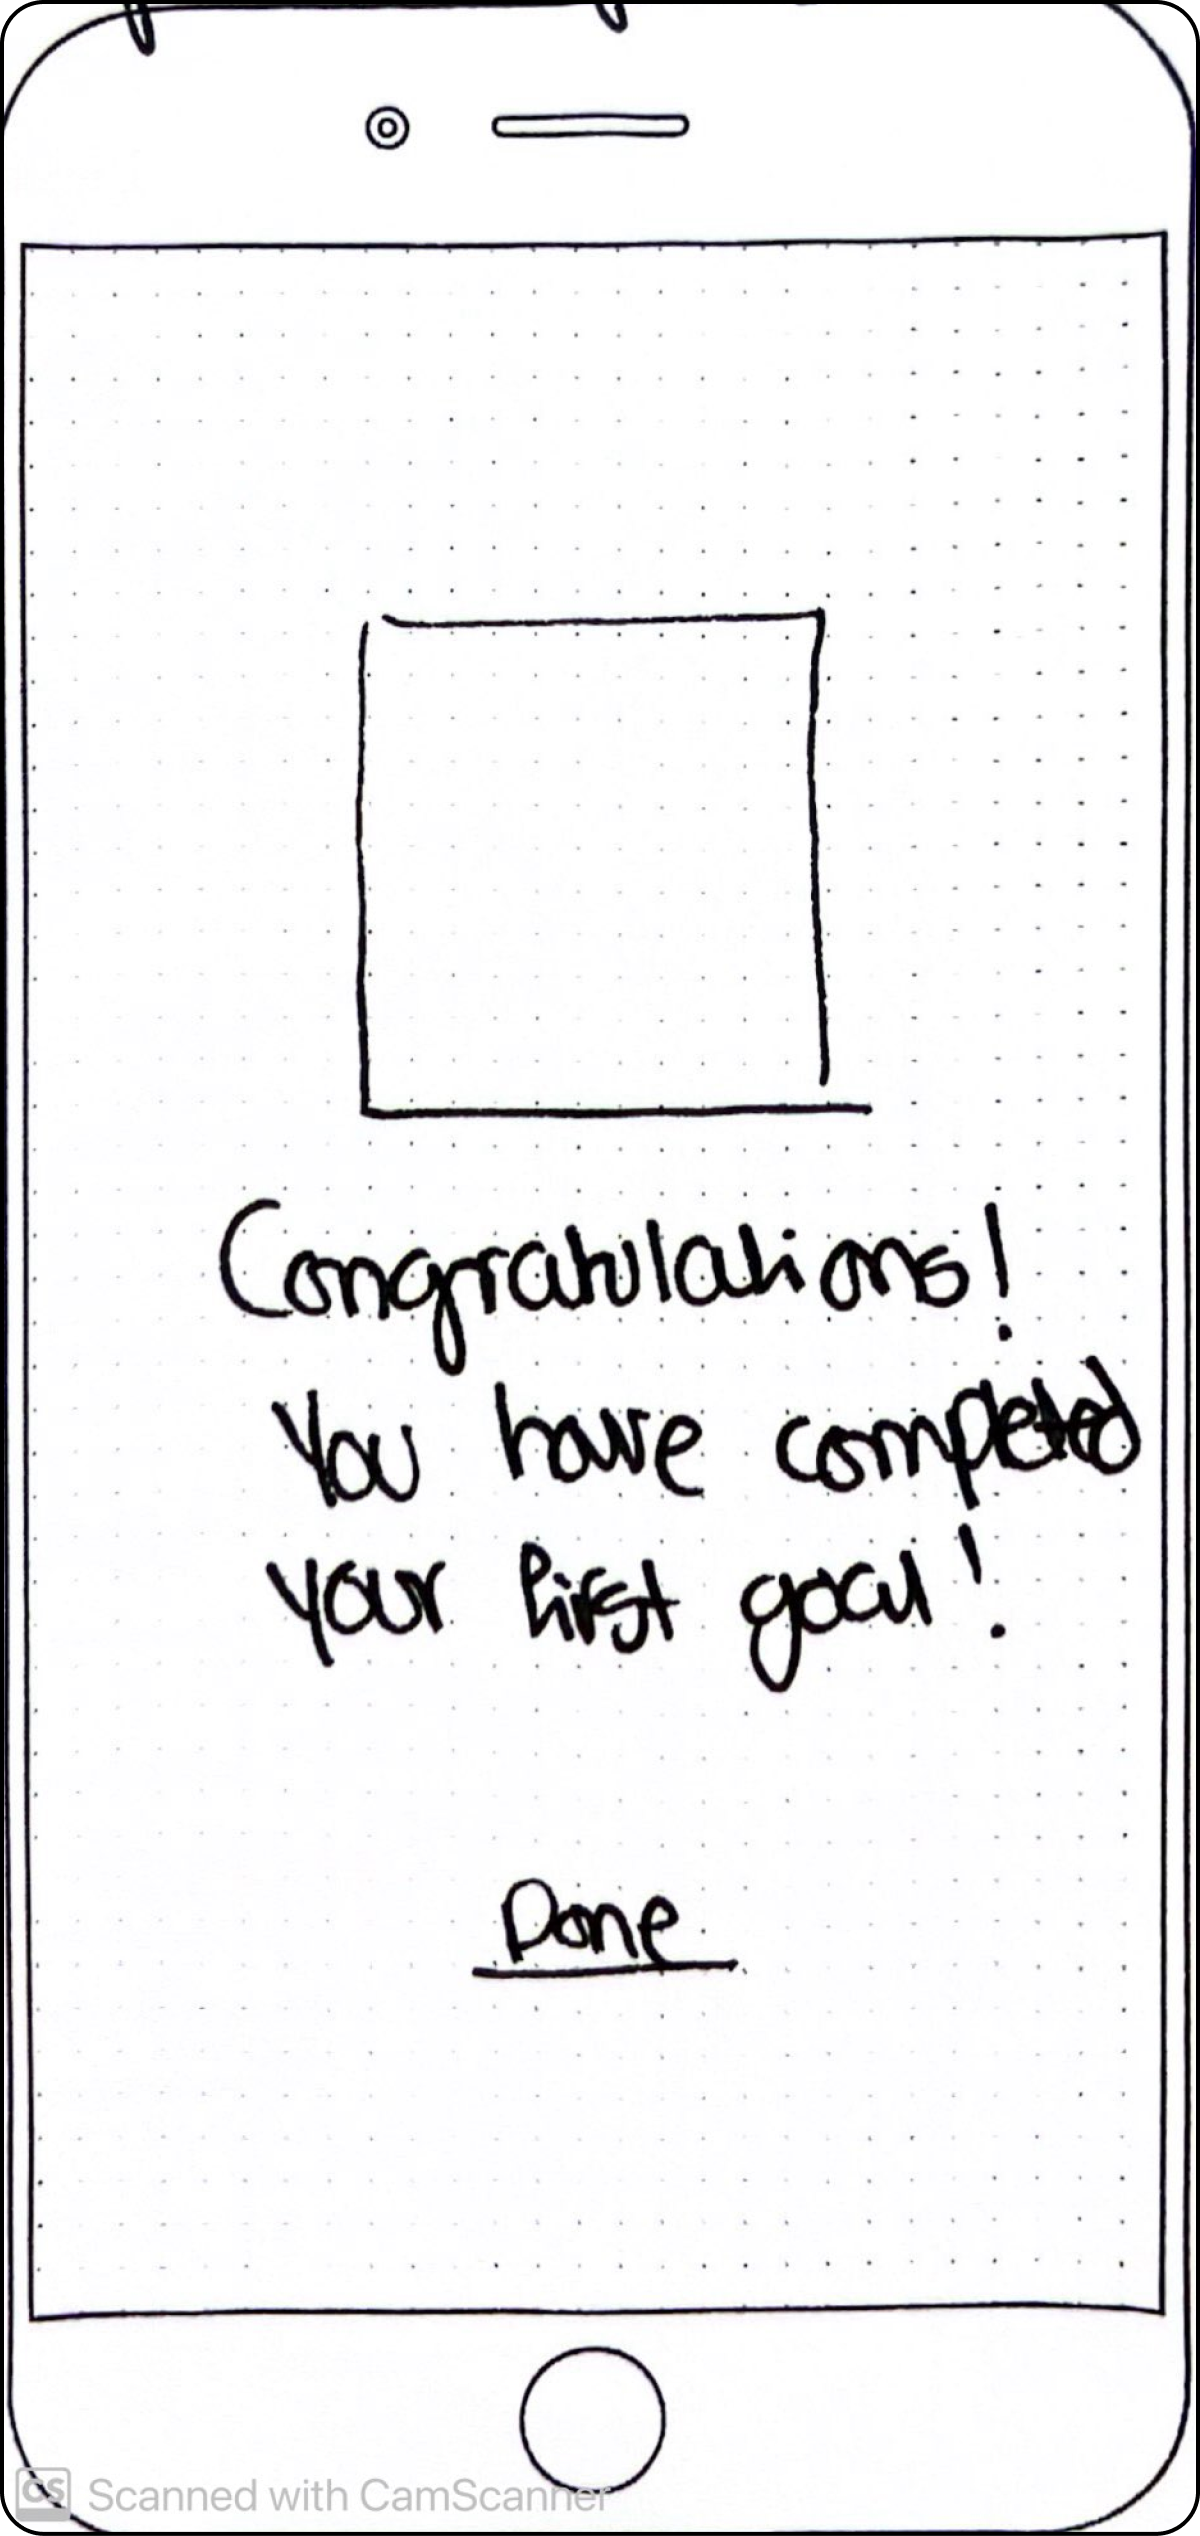 Congratulations!
You have completed
your first goal!
Done
CS Scanned with CamScanner